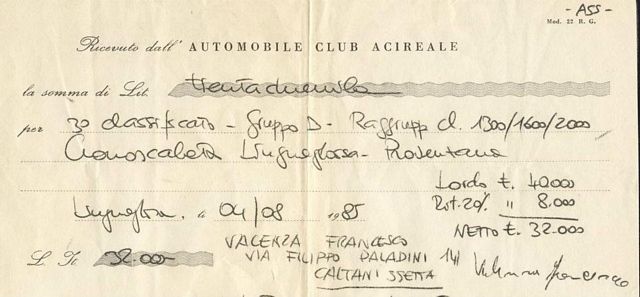 - ASS -
Mod. 22 R. G.
Ricevuto dall' AUTOMOBILE CLUB ACIREALE
la somma di Lit. trentaduemila
per 3o classificato - Gruppo D - Raggrupp cl. 1300/1600/2000
Cronoscalata Linguaglossa - Provenzana
Lordo £. 40.000
Rit. 20% " 8.000
NETTO £. 32.000
Linguaglossa. li 04/08 1985
VALENZA FRANCESCO
VIA FILIPPO PALADINI 141
CALTANISSETTA
L. It. 32.000
Valenza Francesco